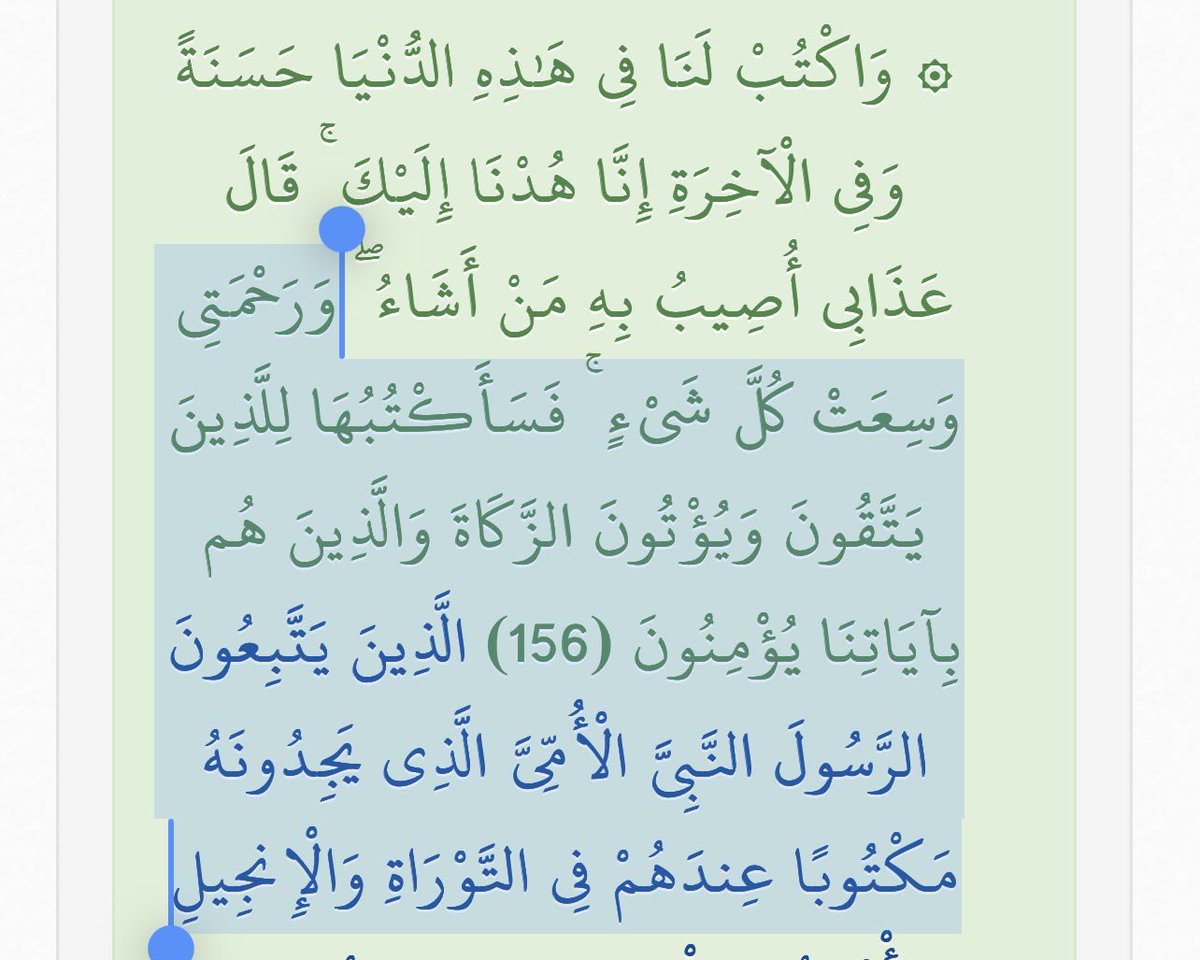 ۞ وَاكْتُبْ لَنَا فِي هَٰذِهِ الدُّنْيَا حَسَنَةً
وَفِي الْآخِرَةِ إِنَّا هُدْنَا إِلَيْكَ ۚ قَالَ
عَذَابِي أُصِيبُ بِهِ مَنْ أَشَاءُ ۖ وَرَحْمَتِي
وَسِعَتْ كُلَّ شَيْءٍ ۚ فَسَأَكْتُبُهَا لِلَّذِينَ
يَتَّقُونَ وَيُؤْتُونَ الزَّكَاةَ وَالَّذِينَ هُم
بِآيَاتِنَا يُؤْمِنُونَ (156) الَّذِينَ يَتَّبِعُونَ
الرَّسُولَ النَّبِيَّ الْأُمِّيَّ الَّذِي يَجِدُونَهُ
مَكْتُوبًا عِندَهُمْ فِي التَّوْرَاةِ وَالْإِنجِيلِ